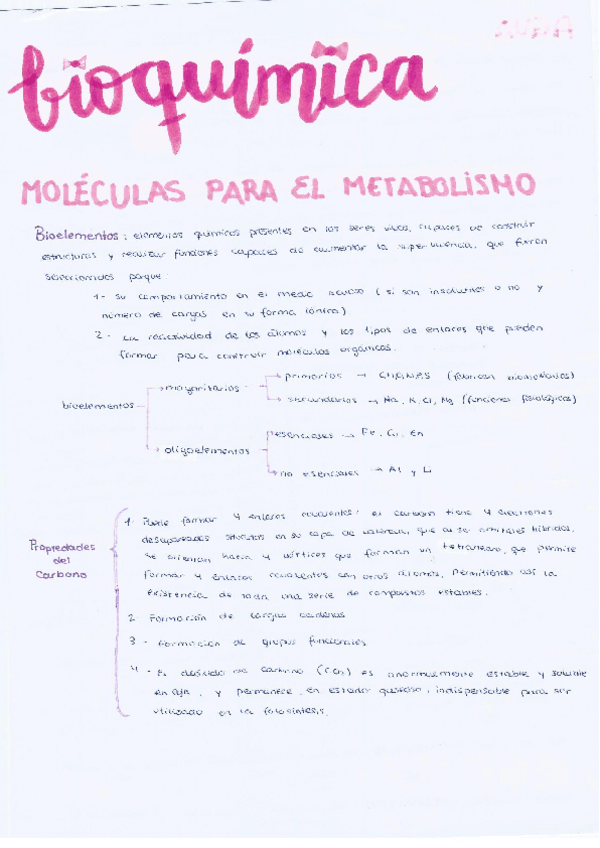 bioquímica
MOLÉCULAS PARA EL METABOLISMO
Bioelementos: elementos químicos presentes en los seres vivos, capaces de construir
estructuras y realizar funciones capaces de aumentar la supervivencia, que fueron
seleccionados porque:
1- Su comportamiento en el medio acuoso (si son insolubles o no y
número de cargas en su forma iónica).
2- La reactividad de los átomos y los tipos de enlaces que pueden
formar para construir moléculas orgánicas.
bioelementos
mayoritarios
primarios → CHONPS (fabrican biomoléculas)
secundarios → Na, K, Cl, Mg (funciones fisiológicas)
oligoelementos
esenciales → Fe, Cu, Zn
no esenciales → Al y Li
Propiedades
del
Carbono
1- Puede formar 4 enlaces covalentes: el carbono tiene 4 electrones
desapareados situados en su capa de valencia, que al ser orbitales híbridos,
se orientan hacia 4 vértices que forman un tetraedro, que permite
formar 4 enlaces covalentes con otros átomos, permitiendo así la
existencia de toda una serie de compuestos estables.
2 Formación de largas cadenas
3- Formación de grupos funcionales
4- El dióxido de carbono (CO2) es anormalmente estable y soluble
en agua, y permanece en estado gaseoso, indispensable para ser
utilizado en la fotosíntesis.